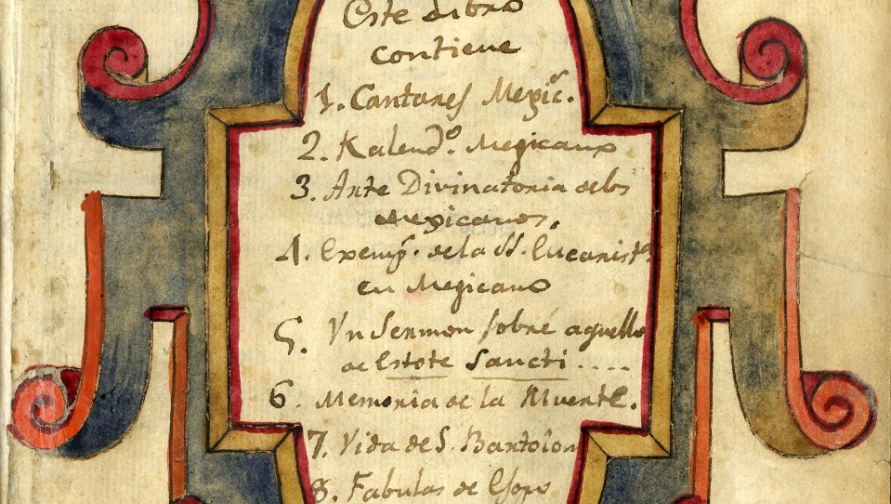 Este Libro
contiene
1. Cantares Megic.ˢ
2. Kalend.º Megicano
3. Arte Divinatoria de los
Megicanos.
4. Exemp.ˢ de la SS. Eucarist.ª
en Megicano
5. Vn Sermon sobre aquello
de Estote Sancti ....
6. Memoria de la Muerte.
7. Vida de S. Bartolom
8. Fabulas de Esopo